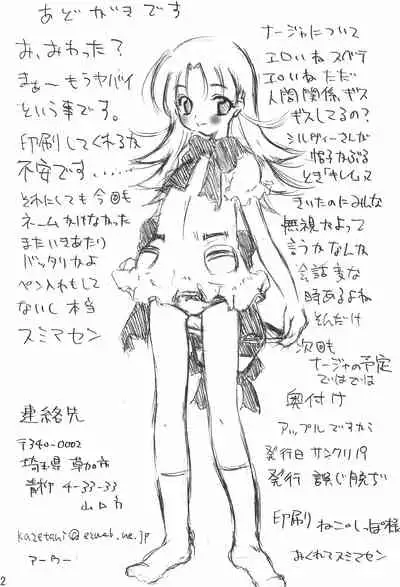 あとがきです
お、おわった？
まぁ〜もうヤバイ
という事です。
印刷してくれるか
不安です……
それにしても今回も
ネームかけなかった
またいきあたり
バッタリかよ
ペン入れもして
ないし 本当
スミマセン
連絡先
〒340-0002
埼玉県 草加市
青柳 4-33-33
kazetsui@ezweb.ne.jp
アーウー
ナージャについて
エロいね スベテ
エロいね ただ
人間関係ギス
ギスしてるの?
シルヴィーさんが
帽子かぶる
とき「キレ」って
きいたのにみんな
無視かよって
言うかなんか
会話変な
時あるよね
そんだけ
次回も
ナージャの予定
ではでは
奥付け
アップルですから
発行日 サンクリ19
発行 誤じ脱ぢ
印刷 ねこのしっぽ様
おくれてスミマセン
2